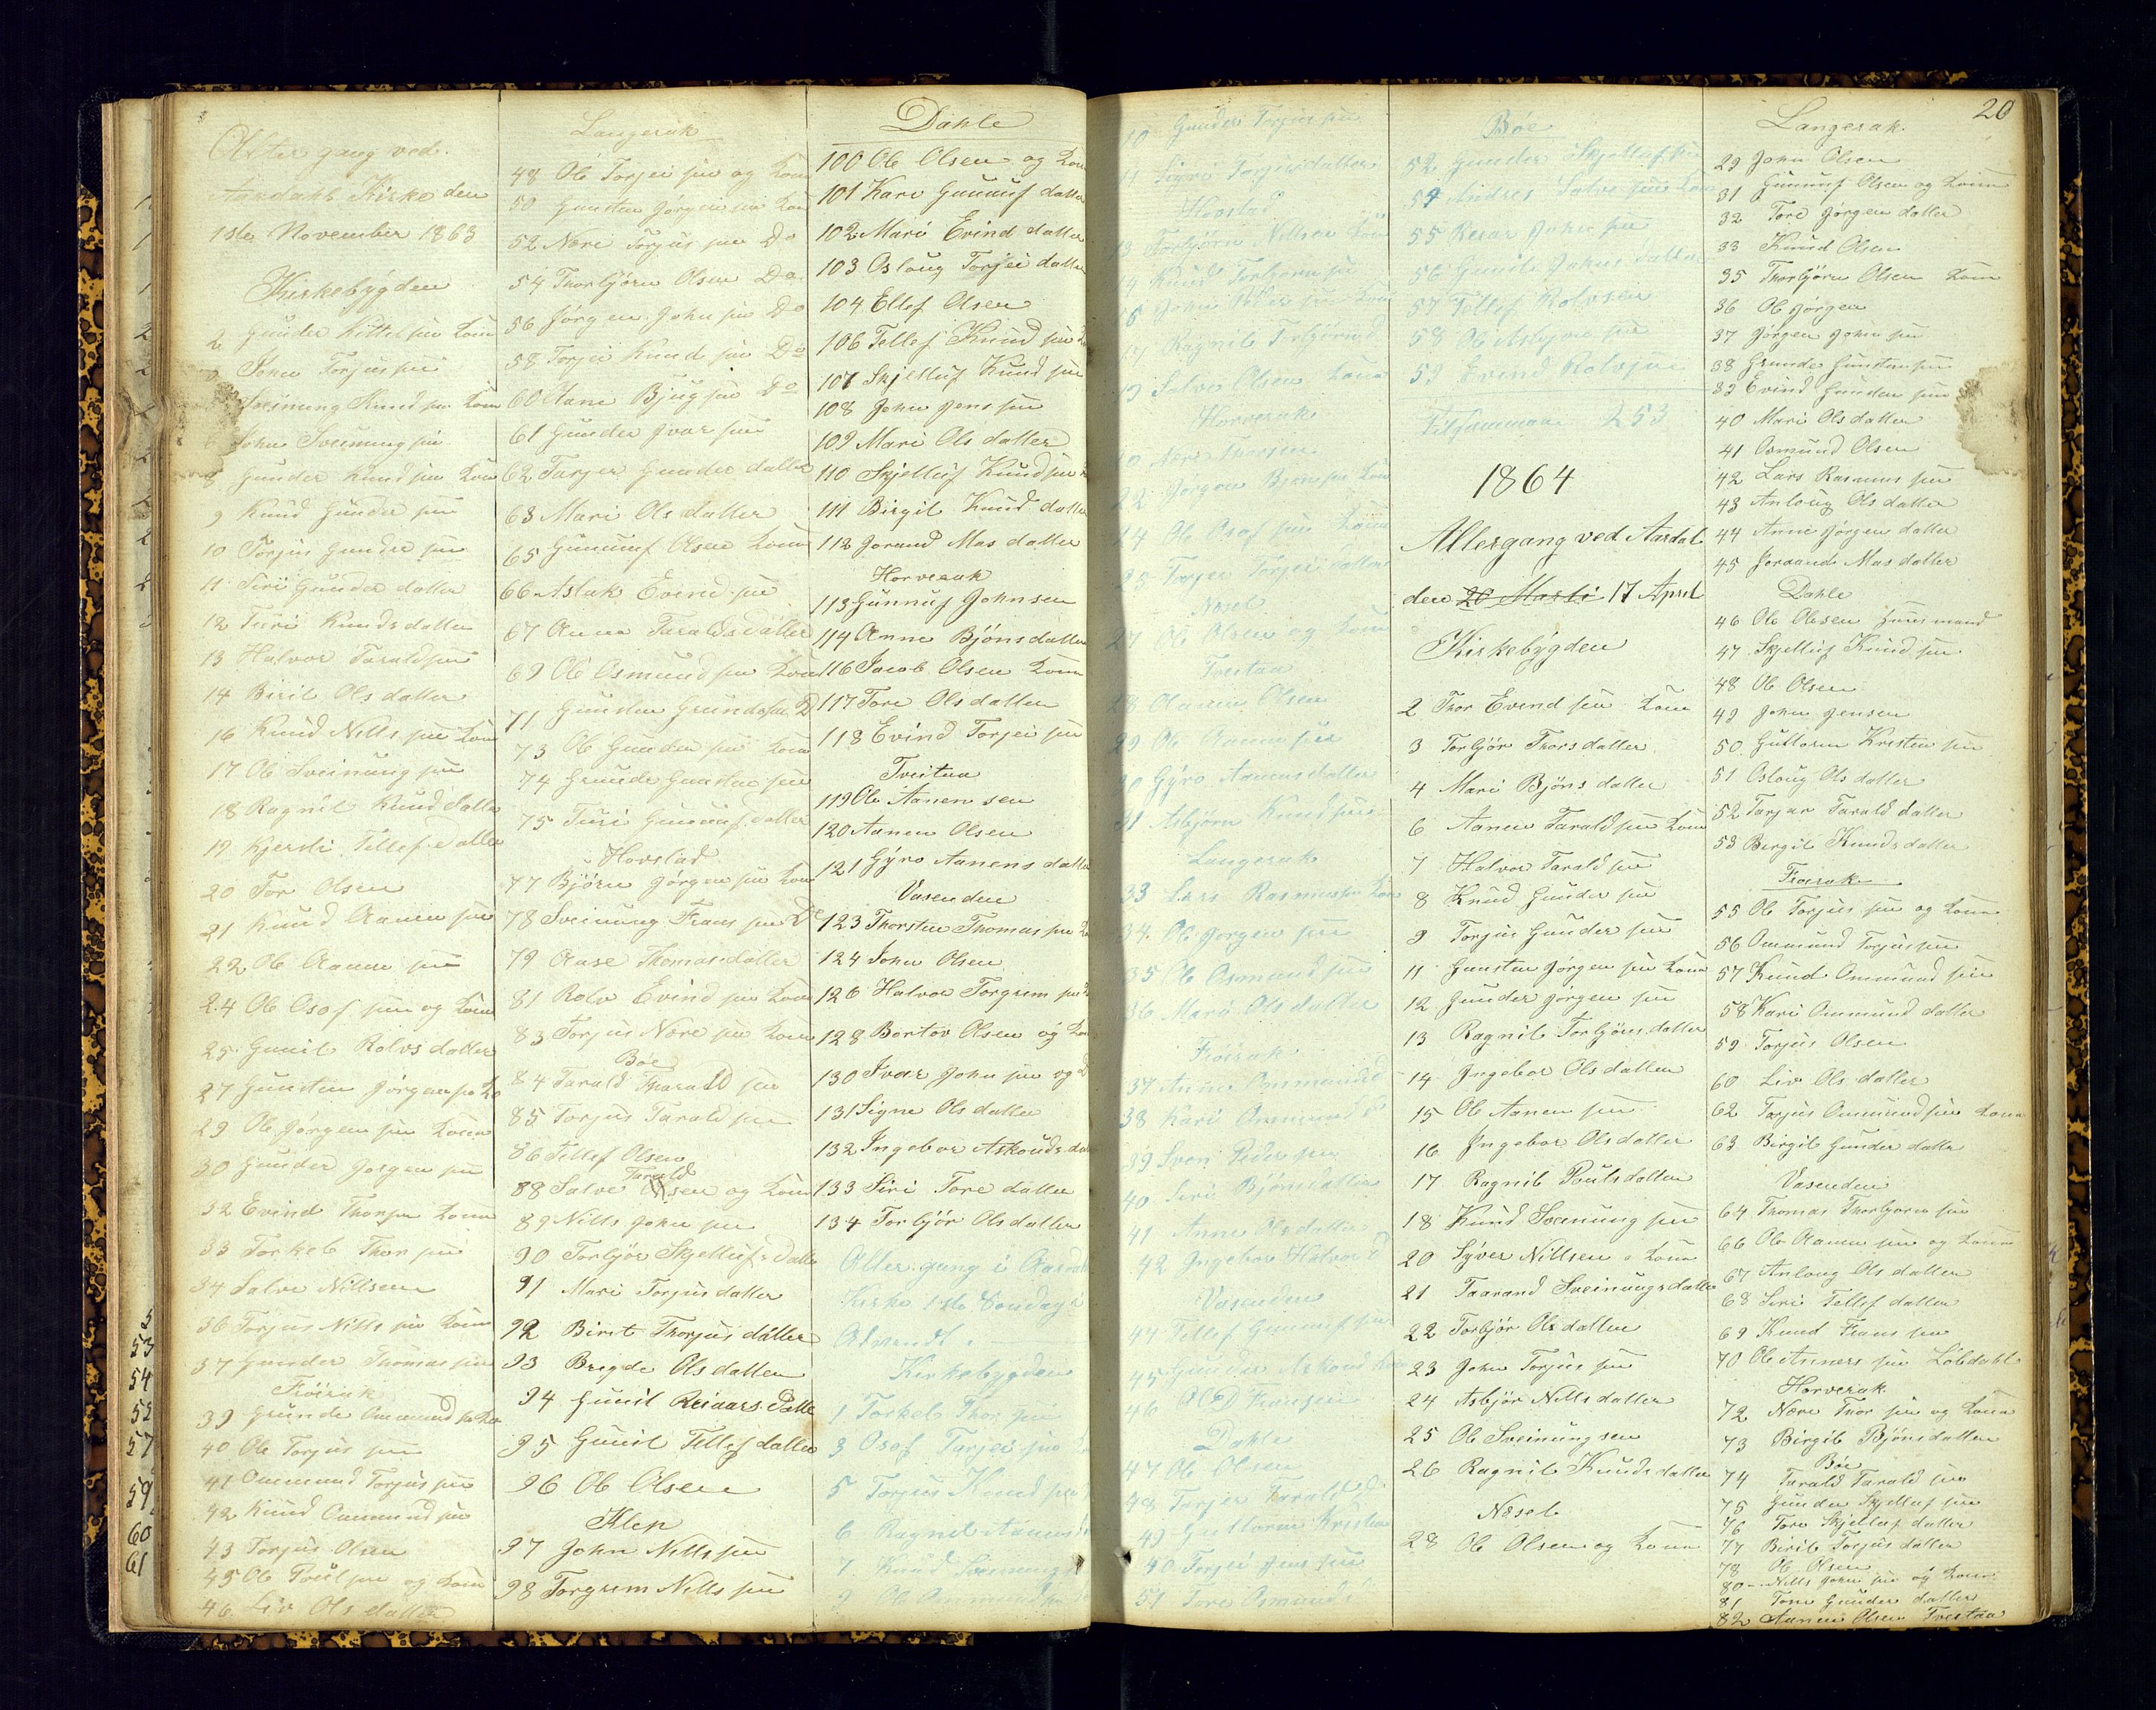 Alter gang ved
Aardahls Kirke den
1ste November 1863
Kirkebÿgden
2 Gunder Kittel sen Kone
3 John Torjus sen
5 Sveinung Knud sen Kone
6 John Sveinung sen
8 Gunder Knud sen Kone
9 Knud Gunder sen
10 Torjus Gundre sen
11 Siri Gunder datter
12 Turi Knuds datter
13 Halvor Tarald sen
14 Birit Ols datter
16 Knud Nills sen Kone
17 Ole Sveinung sen
18 Ragnil Knud datter
19 Kjersti Tellef datter
20 Tor Olsen
21 Knud Aanen sen
22 Ole Aanen sen
24 Ole Osof sen og Kone
25 Gunil Rolvs datter
27 Gunsten Jörgen sen Ko
29 Ole Jörgen sen Kone
30 Gunder Jorgen sen
32 Evind Thorsen Kone
33 Torkel Thor sen
34 Salve Nillsen
36 Torjus Nills sen Kone
37 Gunder Thomas sen
Fröirak
39 Grunde Ommund sen Ko
40 Ole Torjus sen
41 Ommund Torjus sen
42 Knud Ommund sen
43 Torjus Olsen
45 Ole Poul sen og Kone
46 Liv Ols datter
Langerak
48 Ole Torjei sen og Kone
50 Gunsten Jörgen sen Kon
52 Nere Torjus sen Do
54 Thorbjörn Olsen Do
56 Jörgen John sen Do
58 Torjei Knud sen Do
60 Aane Bjug sen Do
61 Gunder Ivar sen
62 Tarjer Gunder datter
63 Mari Ols datter
65 Gunnuf Olsen Kone
66 Aslak Evind sen
67 Anne Taralds datter
69 Ole Osmund sen Kone
71 Gunsten Grunde sen D
73 Ole Gunder sen Kone
74 Grunde Gunsten sen
75 Turi Gunnuf datter
Hovstad
77 Bjórn Jörgen sen Kone
78 Sveinung Frans sen Do
79 Aase Thomas datter
81 Rolv Evind sen Kone
83 Torjus Nere sen Kone
Böe
84 Tarald Tharald sen
85 Torjus Tarald sen
86 Tellef Olsen
88 Salve Tarald sen og Kone
89 Nills John sen
90 Torbjör Skjelluf datte
91 Mari Torjus datter
92 Birit Thorjus datter
93 Bregde Ols datter
94 Gunil Reiaars Datte
95 Gunil Tellef datter
96 Ole Olsen
Klep
97 John Nills sen
98 Torgrim Nills sen
Dahle
100 Ole Olsen og Kon
101 Kari Gunnuf datte
102 Mari Evind datter
103 Osloug Torjei datte
104 Ellef Olsen
106 Tellef Knud sen K
107 Skjelluf Knud sen
108 John Jens sen
109 Mari Ols datter
110 Skjelluf Knud sen
111 Birgit Knud datte
112 Jorand Mas datter
Horverak
113 Gunnuf Johnsen
114 Anne Bjóns datter
116 Jacob Olsen Kone
117 Tore Ols datter
118 Evind Torjei sen
Tveitaa
119 Ole Aanen sen
120 Aanen Olsen
121 Gÿro Aanens datte
Vasenden
123 Thorsten Thomas sen K
124 John Olsen
126 Halvor Torgrim sen
128 Bortov Olsen og Ko
130 Ivar John sen og D
131 Signe Ols datter
132 Ingebor Askouds dat
133 Siri Tore datter
134 Torbjör Ols datter
Alter gang i Aardal
Kirke 1ste Söndag i
Advendt
Kirkebygden
1 Torkel Thor sen
3 Osof Tarjei sen K
5 Torjus Knud sen
6 Ragnil Aanens
7 Knud Sveinung
9 Ole Ommund sen
10 Gunder Torjus sen
11 Sigri Torjus datter
Hovstad
13 Torbjörn Nillsen Kone
14 Knud Torbjorn sen
16 John Peder sen Kone
17 Ragnil Torbjörn d
19 Salve Olsen Kone
Horverak
20 Nere Thorsen
22 Jörgen Bjen sen Kone
24 Ole Osof sen Kone
25 Tarjer Torjei datter
Nesel
27 Ole Olsen og Kone
Tveitaa
28 Aanen Olsen
29 Ole Aanen sen
30 Gÿro Aanens datter
31 Asbjörn Knud sen
Langerak
33 Lars Rasmus sen Kone
34 Ole Jörgen sen
35 Ole Osmund sen
36 Mari Ols datter
Fröirak
37 Anne Ommunds d
38 Kari Ommund d
39 Sven Peder sen
40 Siri Bjöns datter
41 Anne Ols datter
42 Ingebor Halvor d
Vasenden
44 Tellef Gunnuf sen
45 Gunder Askoud sen
46 Ole Fransen
Dahle
47 Ole Olsen
48 Tarjer Tarald d
49 Guttorm Kristen
50 Torjei Jens sen
51 Tore Osmunds d
Böe
52 Gunder Skjelluf sen
54 Andres Salve sen Kone
55 Reiar John sen
56 Gunil Johns datter
57 Tellef Rolvsen
58 Ole Asbjörn sen
59 Evind Rolvsen
Tilsammen 253
1864
Altergang ved Aardal
den 20 Marti 17 April
Kirkebÿgden
2 Thor Evend sen Kone
3 Torbjör Thors datter
4 Mari Bjöns datter
6 Aanen Tarald sen Kone
7 Halvor Tarald sen
8 Knud Gunder sen
9 Torjus Gunder sen
11 Gunsten Jörgen sen Kone
12 Gunder Jörgen sen
13 Ragnil Torbjörns datter
14 Ingebor Ols datter
15 Ole Aanen sen
16 Ingebor Ols datter
17 Ragnil Pouls datter
18 Knud Sveinung sen
20 Syver Nillsen Kone
21 Taarand Sveinungs datte
22 Torbjör Ols datter
23 John Torjus sen
24 Asbjör Nills datter
25 Ole Sveinung sen
26 Ragnil Knuds datter
Nesel
28 Ole Olsen og Kone
20
Langerak
29 John Olsen
31 Gunnuf Olsen og Kone
32 Tore Jörgen datter
33 Knud Olsen
35 Thorbjörn Olsen Kone
36 Ole Jörgen
37 Jörgen John sen
38 Grunde Gunsten sen
39 Evind Gunder sen
40 Mari Ols datter
41 Osmund Olsen
42 Lars Rasmus sen
43 Anloug Ols datter
44 Anne Jörgen datter
45 Joraand Mas datter
Dahle
46 Ole Olsen Huusmand
47 Skjelluf Knud sen
48 Ole Olsen
49 John Jensen
50 Guttorm Kresten sen
51 Osloug Ols datter
52 Tarjar Tarald datter
53 Birgit Knuds datter
Fröirak
55 Ole Torjus sen og Kone
56 Ommund Torjus sen
57 Knud Ommund sen
58 Kari Ommund datter
59 Torjus Olsen
60 Liv Ols datter
62 Torjus Ommund sen Kone
63 Birgit Gunder datter
Vasenden
64 Thomas Thorbjorn sen
66 Ole Aanen sen og Kone
67 Anloug Ols datter
68 Siri Tellef datter
69 Knud Frans sen
70 Ole Anners sen Löbdahl
Horverak
72 Nere Thor sen og Kone
73 Birgit Bjöns datter
Böe
74 Tarald Tarald sen
75 Gunder Skjelluf sen
76 Tore Skjelluf datter
77 Birit Torjus datter
78 Ole Olsen
80 Nills John sen og Kone
81 Tone Gunder datter
82 Aanen Olsen Tveitaa
5
53
54
52
57
59
60
61